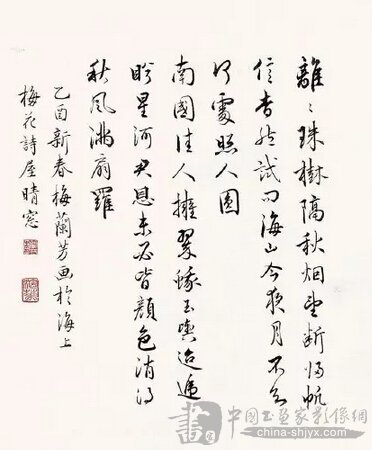 離〻珠樹隔秋烟望斷歸帆
信杳然試问海山今夜月不知
何處照人圓
南國佳人擁翠蛾玉輿迢遞
盼星河君恩未必皆顏色消得
秋風滿扇羅
乙酉新春梅蘭芳画於海上
梅花詩屋晴窓
書
中國书画家影像網
china-shjyx.com